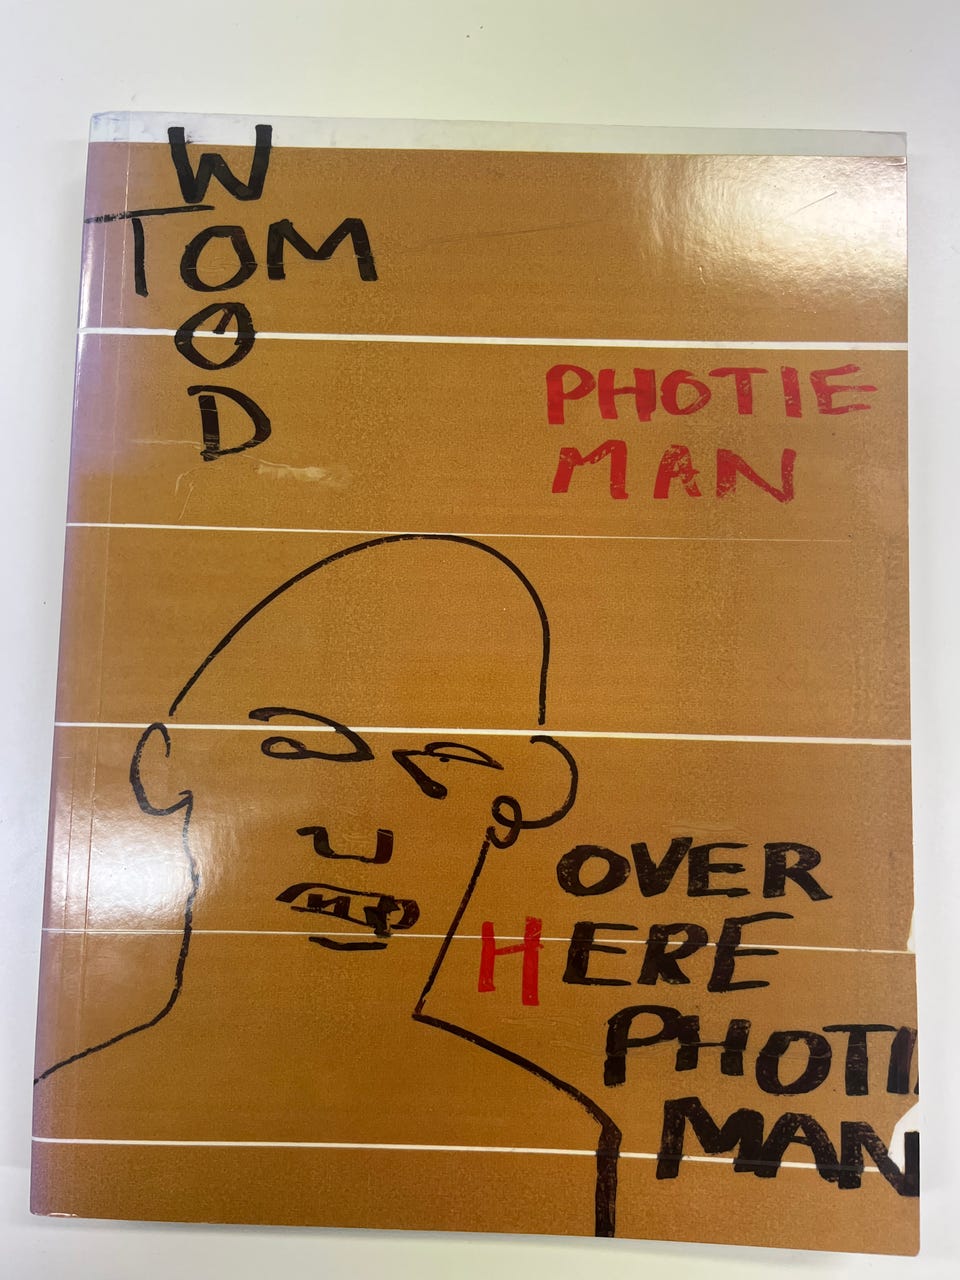 W
TOM
O
D
PHOTIE
MAN
OVER
HERE
PHOTI
MAN